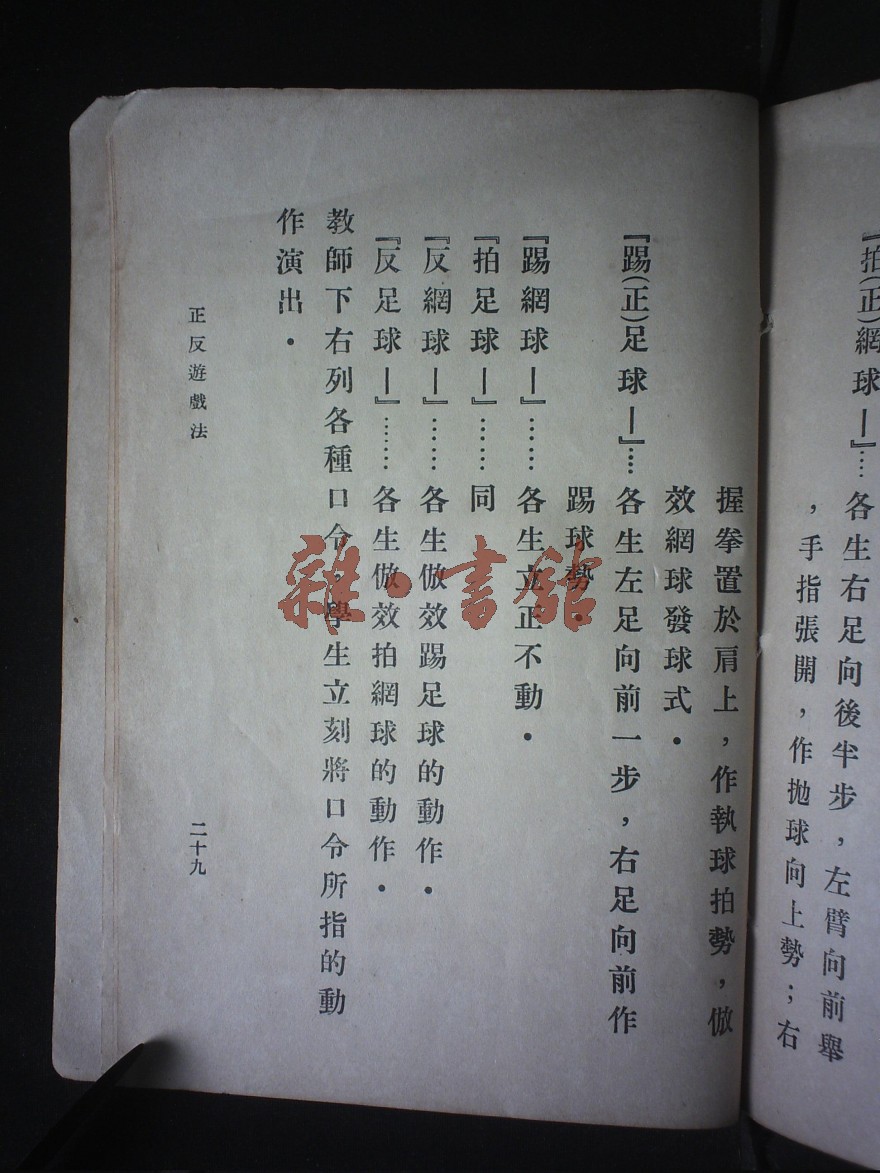 『拍(正)網球—』…各生右足向後半步，左臂向前舉
，手指張開，作抛球向上勢；右
握拳置於肩上，作執球拍勢，倣
效網球發球式．
『踢(正)足球—』…各生左足向前一步，右足向前作
踢球勢．
『踢網球—』……各生立正不動．
『拍足球—』……同
『反網球—』……各生倣效踢足球的動作．
『反足球—』……各生倣效拍網球的動作．
教師下右列各種口令，學生立刻將口令所指的動
作演出．
正反遊戲法
二十九
雜·書館